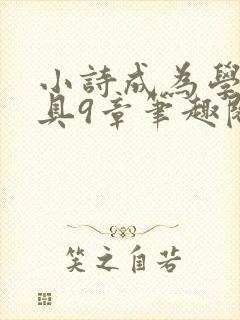 小詩成為學
具9章筆趣閣
笑之自若